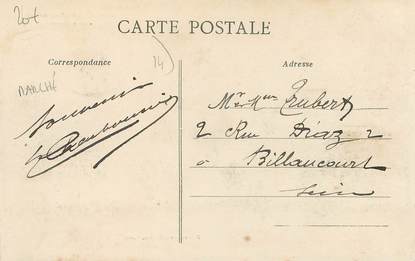 20f
CARTE POSTALE
Correspondance
Adresse
14)
MARCHÉ
Souvenir
Mr Mme Trubert
2 Rue Diaz 2
a Billancourt
Seine